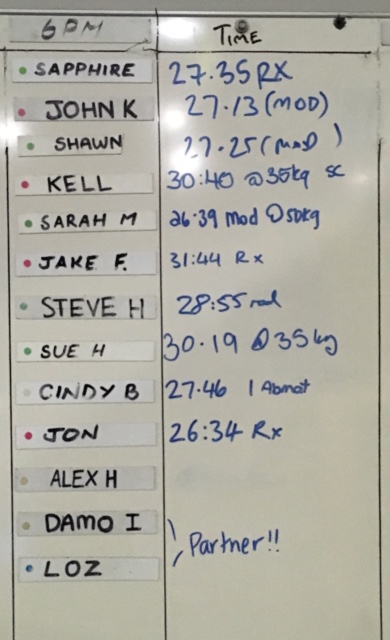 6PM TIME
SAPPHIRE 27.35 RX
JOHN K 27.13 (MOD)
SHAWN 27.25 (mod)
KELL 30:40 @35kg sc
SARAH M 26.39 Mod @50kg
JAKE F. 31:44 Rx
STEVE H 28:55
SUE H 30.19 @35kg
CINDY B 27.46 1 Abmat
JON 26:34 Rx
ALEX H
DAMO I
Partner!!
LOZ